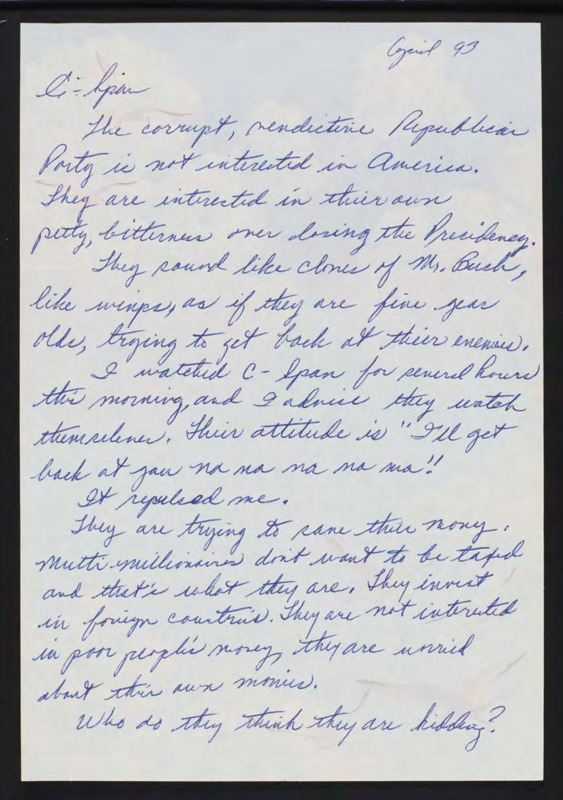 April 93
C-Span
The corrupt, vendictive Republican
Party is not interested in America.
They are interested in thier own
petty, bitterness over losing the Presidency.
They sound like clones of Mr. Bush,
like wimps, as if they are five year
olds, trying to get back at thier enemies.
I watched C-Span for several hours
this morning, and I advise they watch
themselves. Thier attitude is "I'll get
back at you na na na na na"!!
It repulsed me.
They are trying to save thier money.
Multi-millionaires don't want to be taxed
and that's what they are. They invest
in foreign countries. They are not interested
in poor people's money, they are worried
about thier own monies.
Who do they think they are kidding?